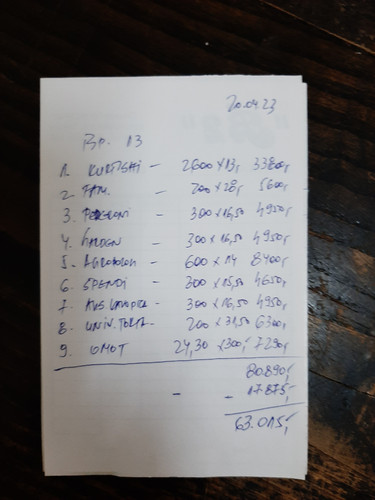 20.04.23
Br. 13
1. KURTISHI – 2600 x 13,- 33800,-
2. FAM. – 200 x 28,- 5600,-
3. – 300 x 16,50 4950,-
4. – 300 x 16,50 4950,-
5. – 600 x 14 8400,-
6. SPENDI – 300 x 15,50 4650,-
7. – 300 x 16,50 4950,-
8. UNIV. – 200 x 31,50 6300,-
9. OMOT 24,30 x 300,- 7290,-
80.890,-
– – 17.875,-
63.015,-